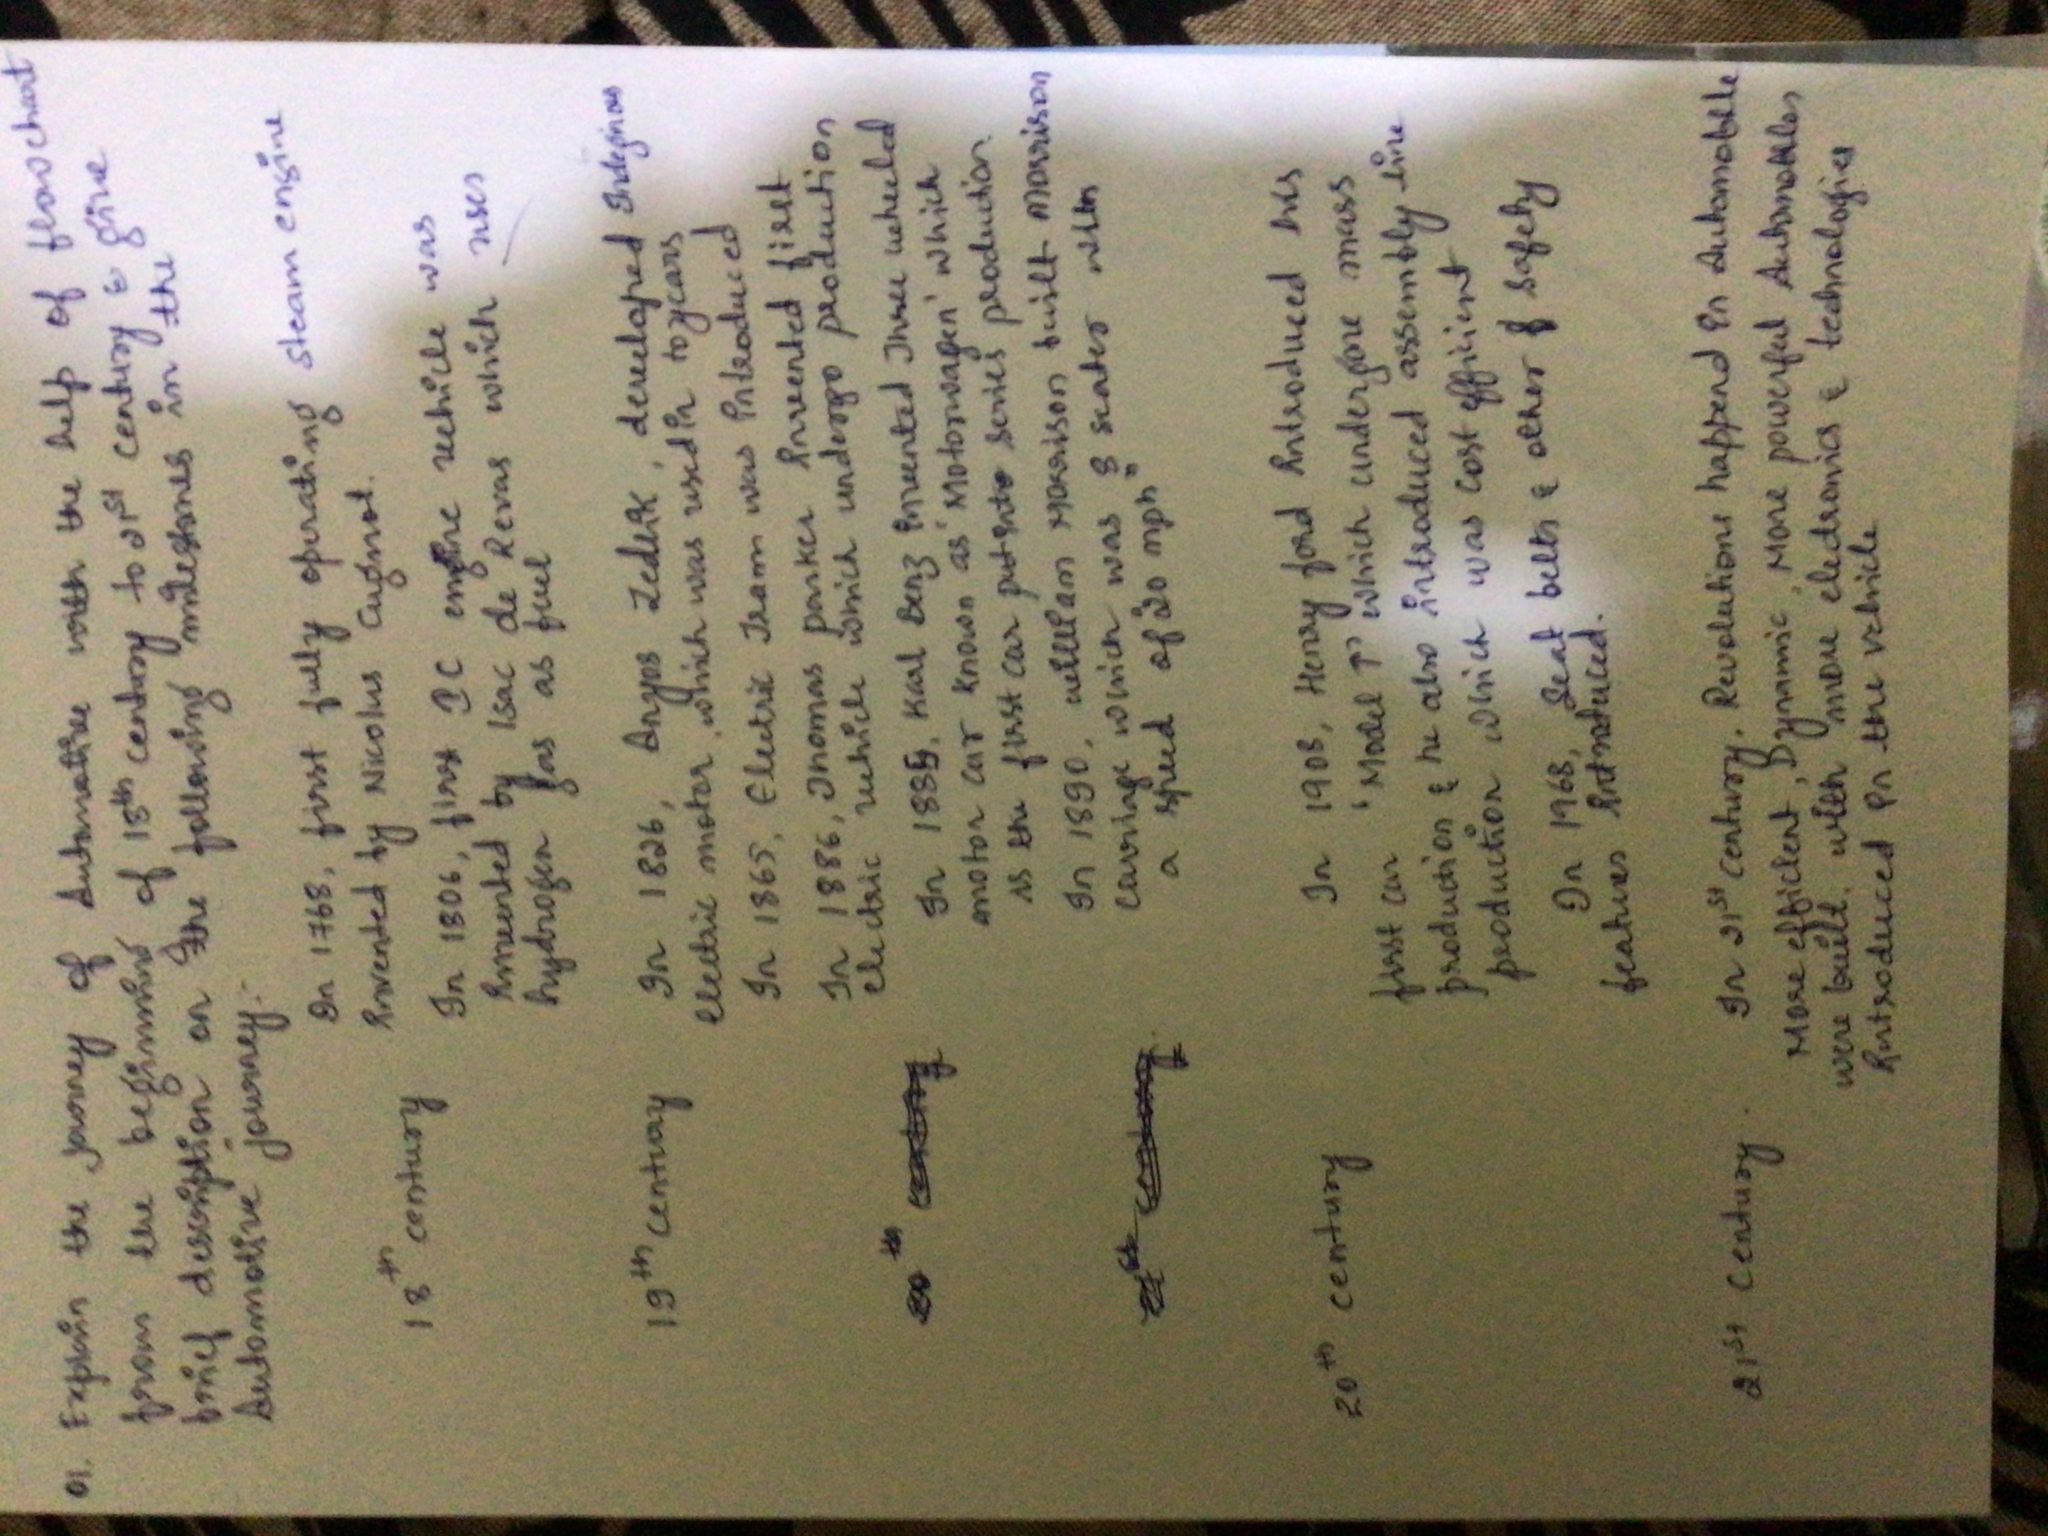 01. Explain the journey of Automotive with the help of flowchart
from the beginning of 18th century to 21st century & give
brief description on the following milestones in the
Automotive journey:-
In 1768, first fully operating steam engine
18th century
Invented by Nicolus Cugnot.
In 1806, first IC engine vehicle was
Invented by Isac de Revas which uses
hydrogen gas as fuel
19th century
In 1826, Anyos Zedlik, developed Indeginous
electric motor, which was used in toycars
In 1865, Electric Tram was Introduced
In 1886, Thomas parker Invented first
electric vehicle which undergo production
20th century
In 1885, Karl Benz Invented Three wheeled
motor car known as 'Motorwagen' which
is the first car put into series production
In 1890, william Morrison built Morrison
21st century
Carriage which was 8 seater with
a speed of "20 mph"
20th century
In 1908, Henry ford Introduced his
first car 'Model T' which undergone mass
production & he also introduced assembly line
production which was cost efficient
In 1968, Seat belts & other safety
features Introduced.
21st Century
In 21st century, Revolutions happend in Automobile
More efficient, Dynamic, More powerful Automobiles
were built, with more electronics & technologies
Introduced in the vehicle